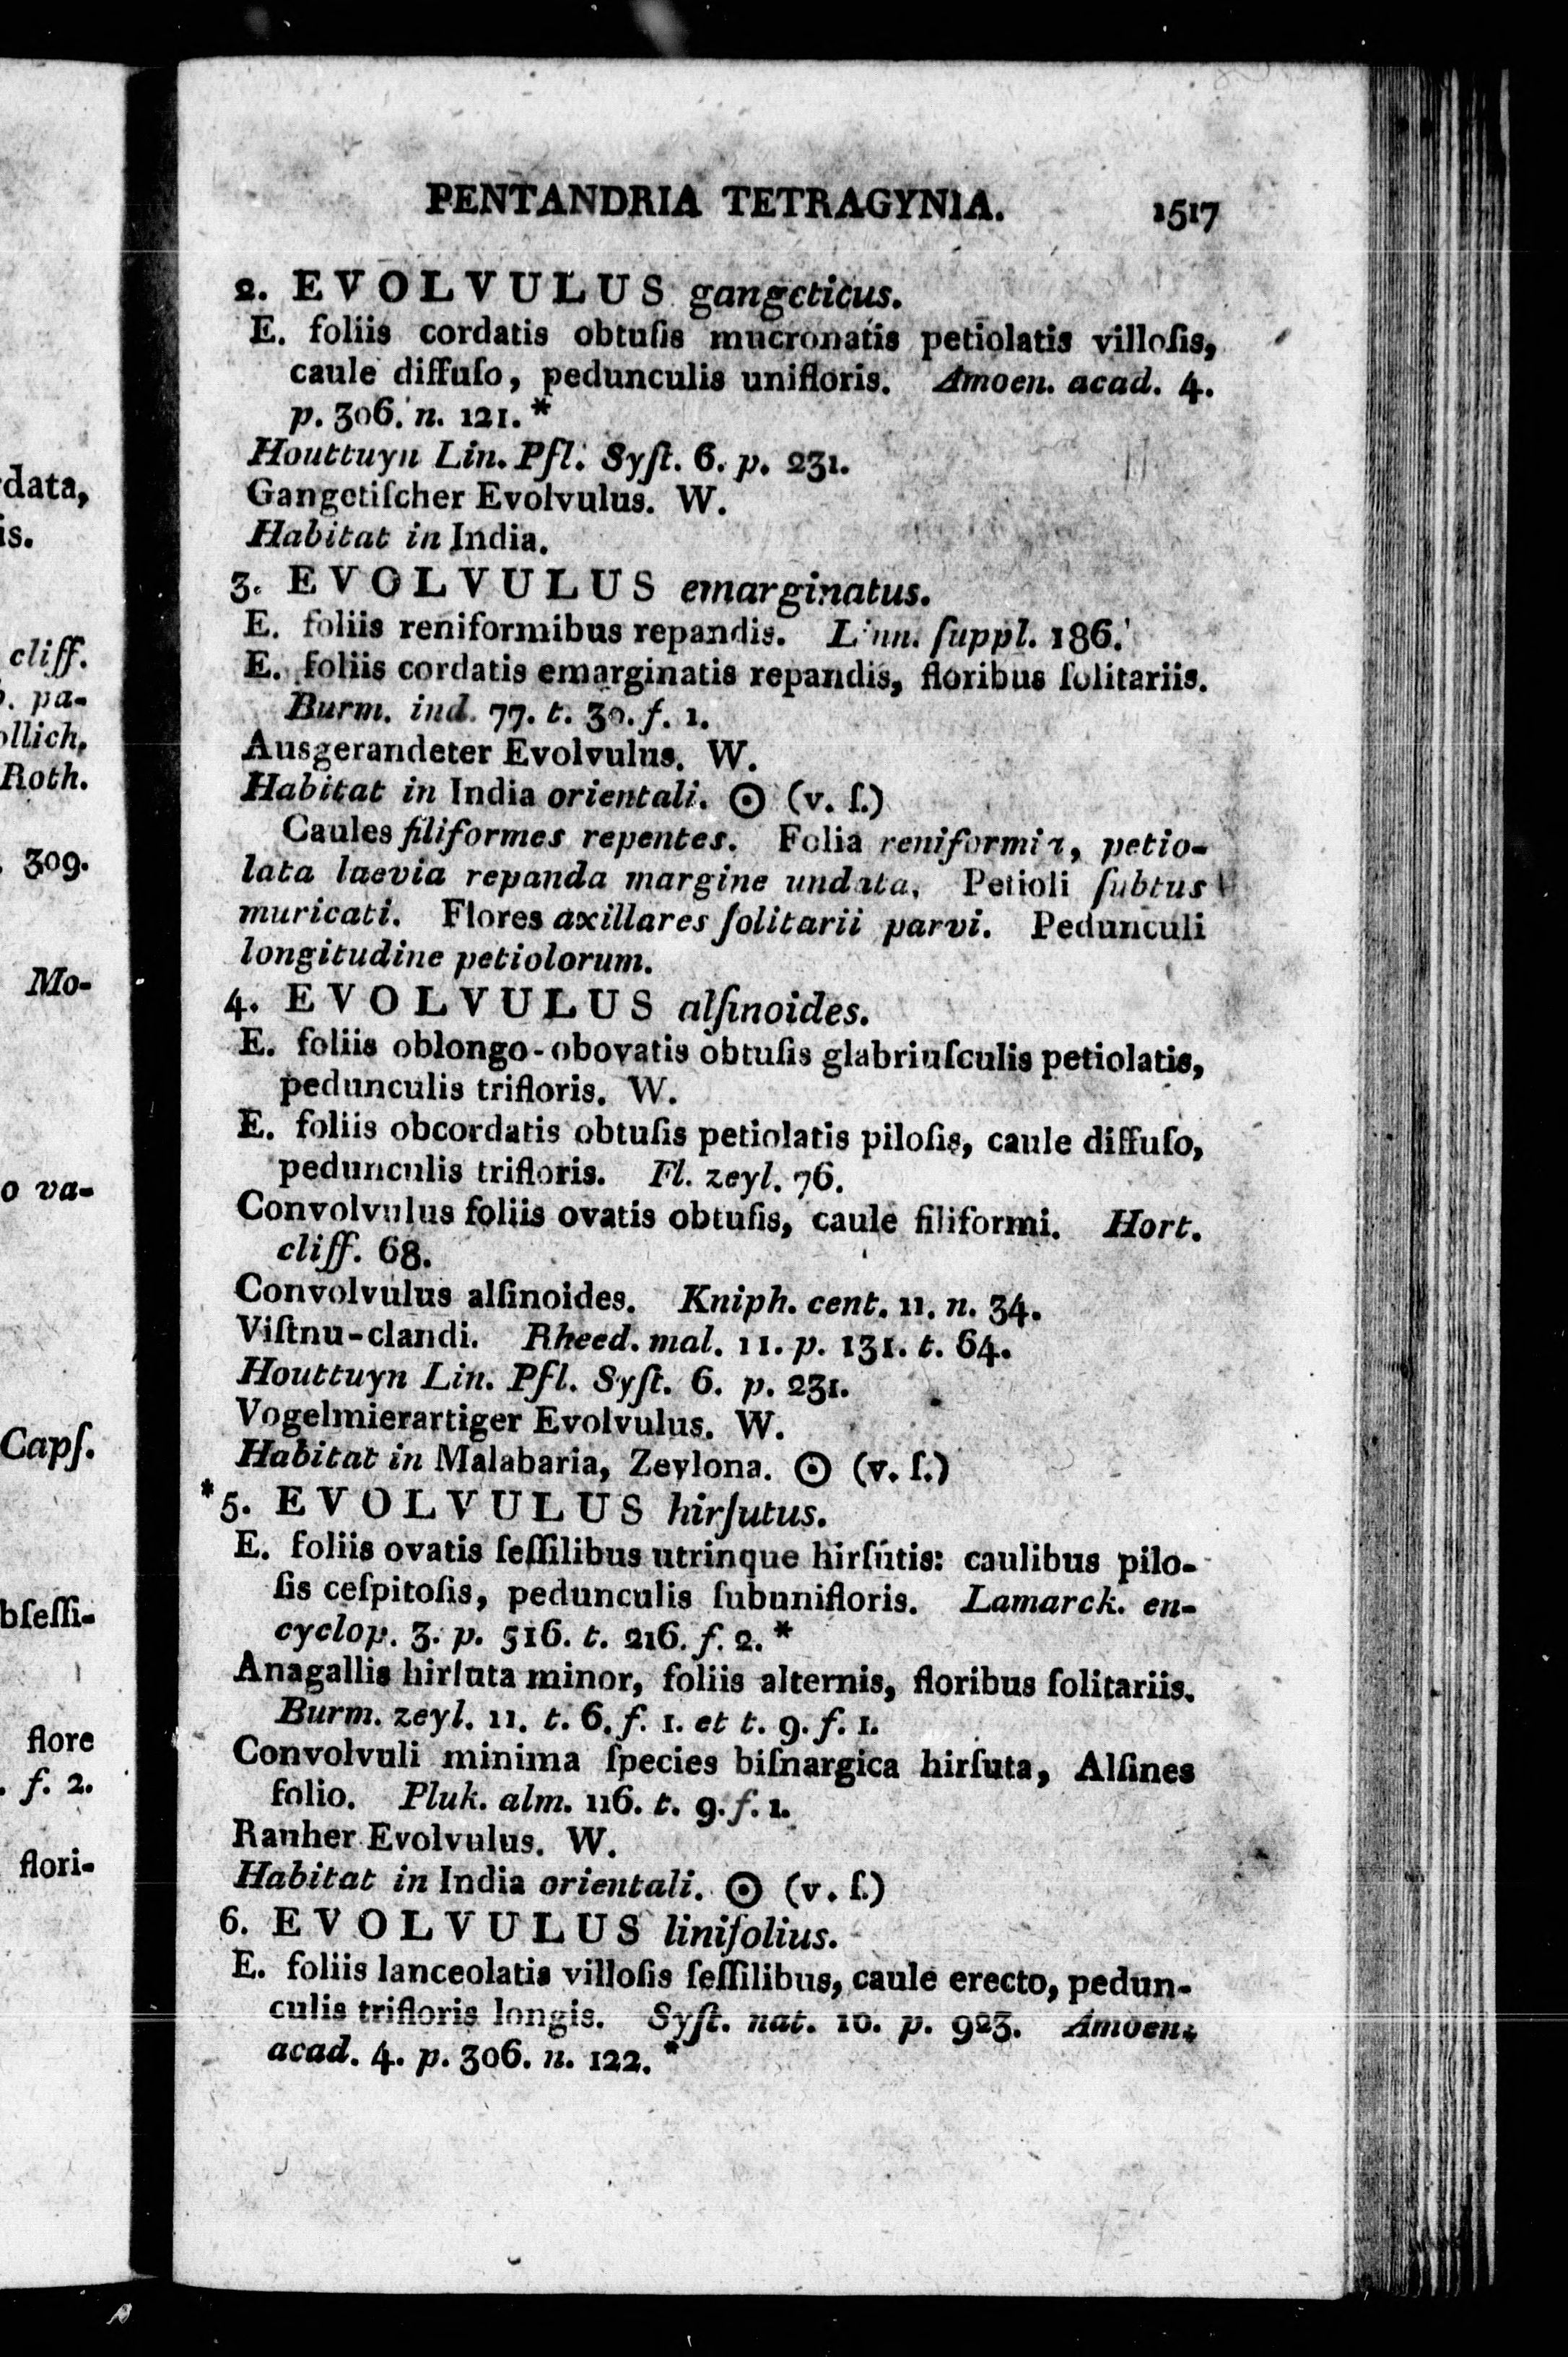 PENTANDRIA TETRAGYNIA. 1517
2. EVOLVULUS gangeticus.
E. foliis cordatis obtuſis mucronatis petiolatis villoſis,
caule diffuſo, pedunculis unifloris. Amoen. acad. 4.
p. 306. n. 121. *
Houttuyn Lin. Pfl. Syſt. 6. p. 231.
Gangetiſcher Evolvulus. W.
Habitat in India.
3. EVOLVULUS emarginatus.
E. foliis reniformibus repandis. Linn. ſuppl. 186.
E. foliis cordatis emarginatis repandis, floribus ſolitariis.
Burm. ind. 77. t. 30. f. 1.
Ausgerandeter Evolvulus. W.
Habitat in India orientali. ☉ (v. ſ.)
Caules filiformes repentes. Folia reniformia, petio-
lata laevia repanda margine undata. Petioli ſubtus
muricati. Flores axillares ſolitarii parvi. Pedunculi
longitudine petiolorum.
4. EVOLVULUS alſinoides.
E. foliis oblongo-obovatis obtuſis glabriuſculis petiolatis,
pedunculis trifloris. W.
E. foliis obcordatis obtuſis petiolatis piloſis, caule diffuſo,
pedunculis trifloris. Fl. zeyl. 76.
Convolvulus foliis ovatis obtuſis, caule filiformi. Hort.
cliff. 68.
Convolvulus alſinoides. Kniph. cent. 11. n. 34.
Viſtnu-clandi. Rheed. mal. 11. p. 131. t. 64.
Houttuyn Lin. Pfl. Syſt. 6. p. 231.
Vogelmierartiger Evolvulus. W.
Habitat in Malabaria, Zeylona. ☉ (v. ſ.)
*5. EVOLVULUS hirſutus.
E. foliis ovatis ſeſſilibus utrinque hirſutis: caulibus pilo-
ſis ceſpitoſis, pedunculis ſubunifloris. Lamarck. en-
cyclop. 3. p. 516. t. 216. f. 2. *
Anagallis hirſuta minor, foliis alternis, floribus ſolitariis.
Burm. zeyl. 11. t. 6. f. 1. et t. 9. f. 1.
Convolvuli minima ſpecies biſnargica hirſuta, Alſines
folio. Pluk. alm. 116. t. 9. f. 1.
Rauher Evolvulus. W.
Habitat in India orientali. ☉ (v. ſ.)
6. EVOLVULUS linifolius.
E. foliis lanceolatis villoſis ſeſſilibus, caule erecto, pedun-
culis trifloris longis. Syſt. nat. 10. p. 923. Amoen.
acad. 4. p. 306. n. 122. *